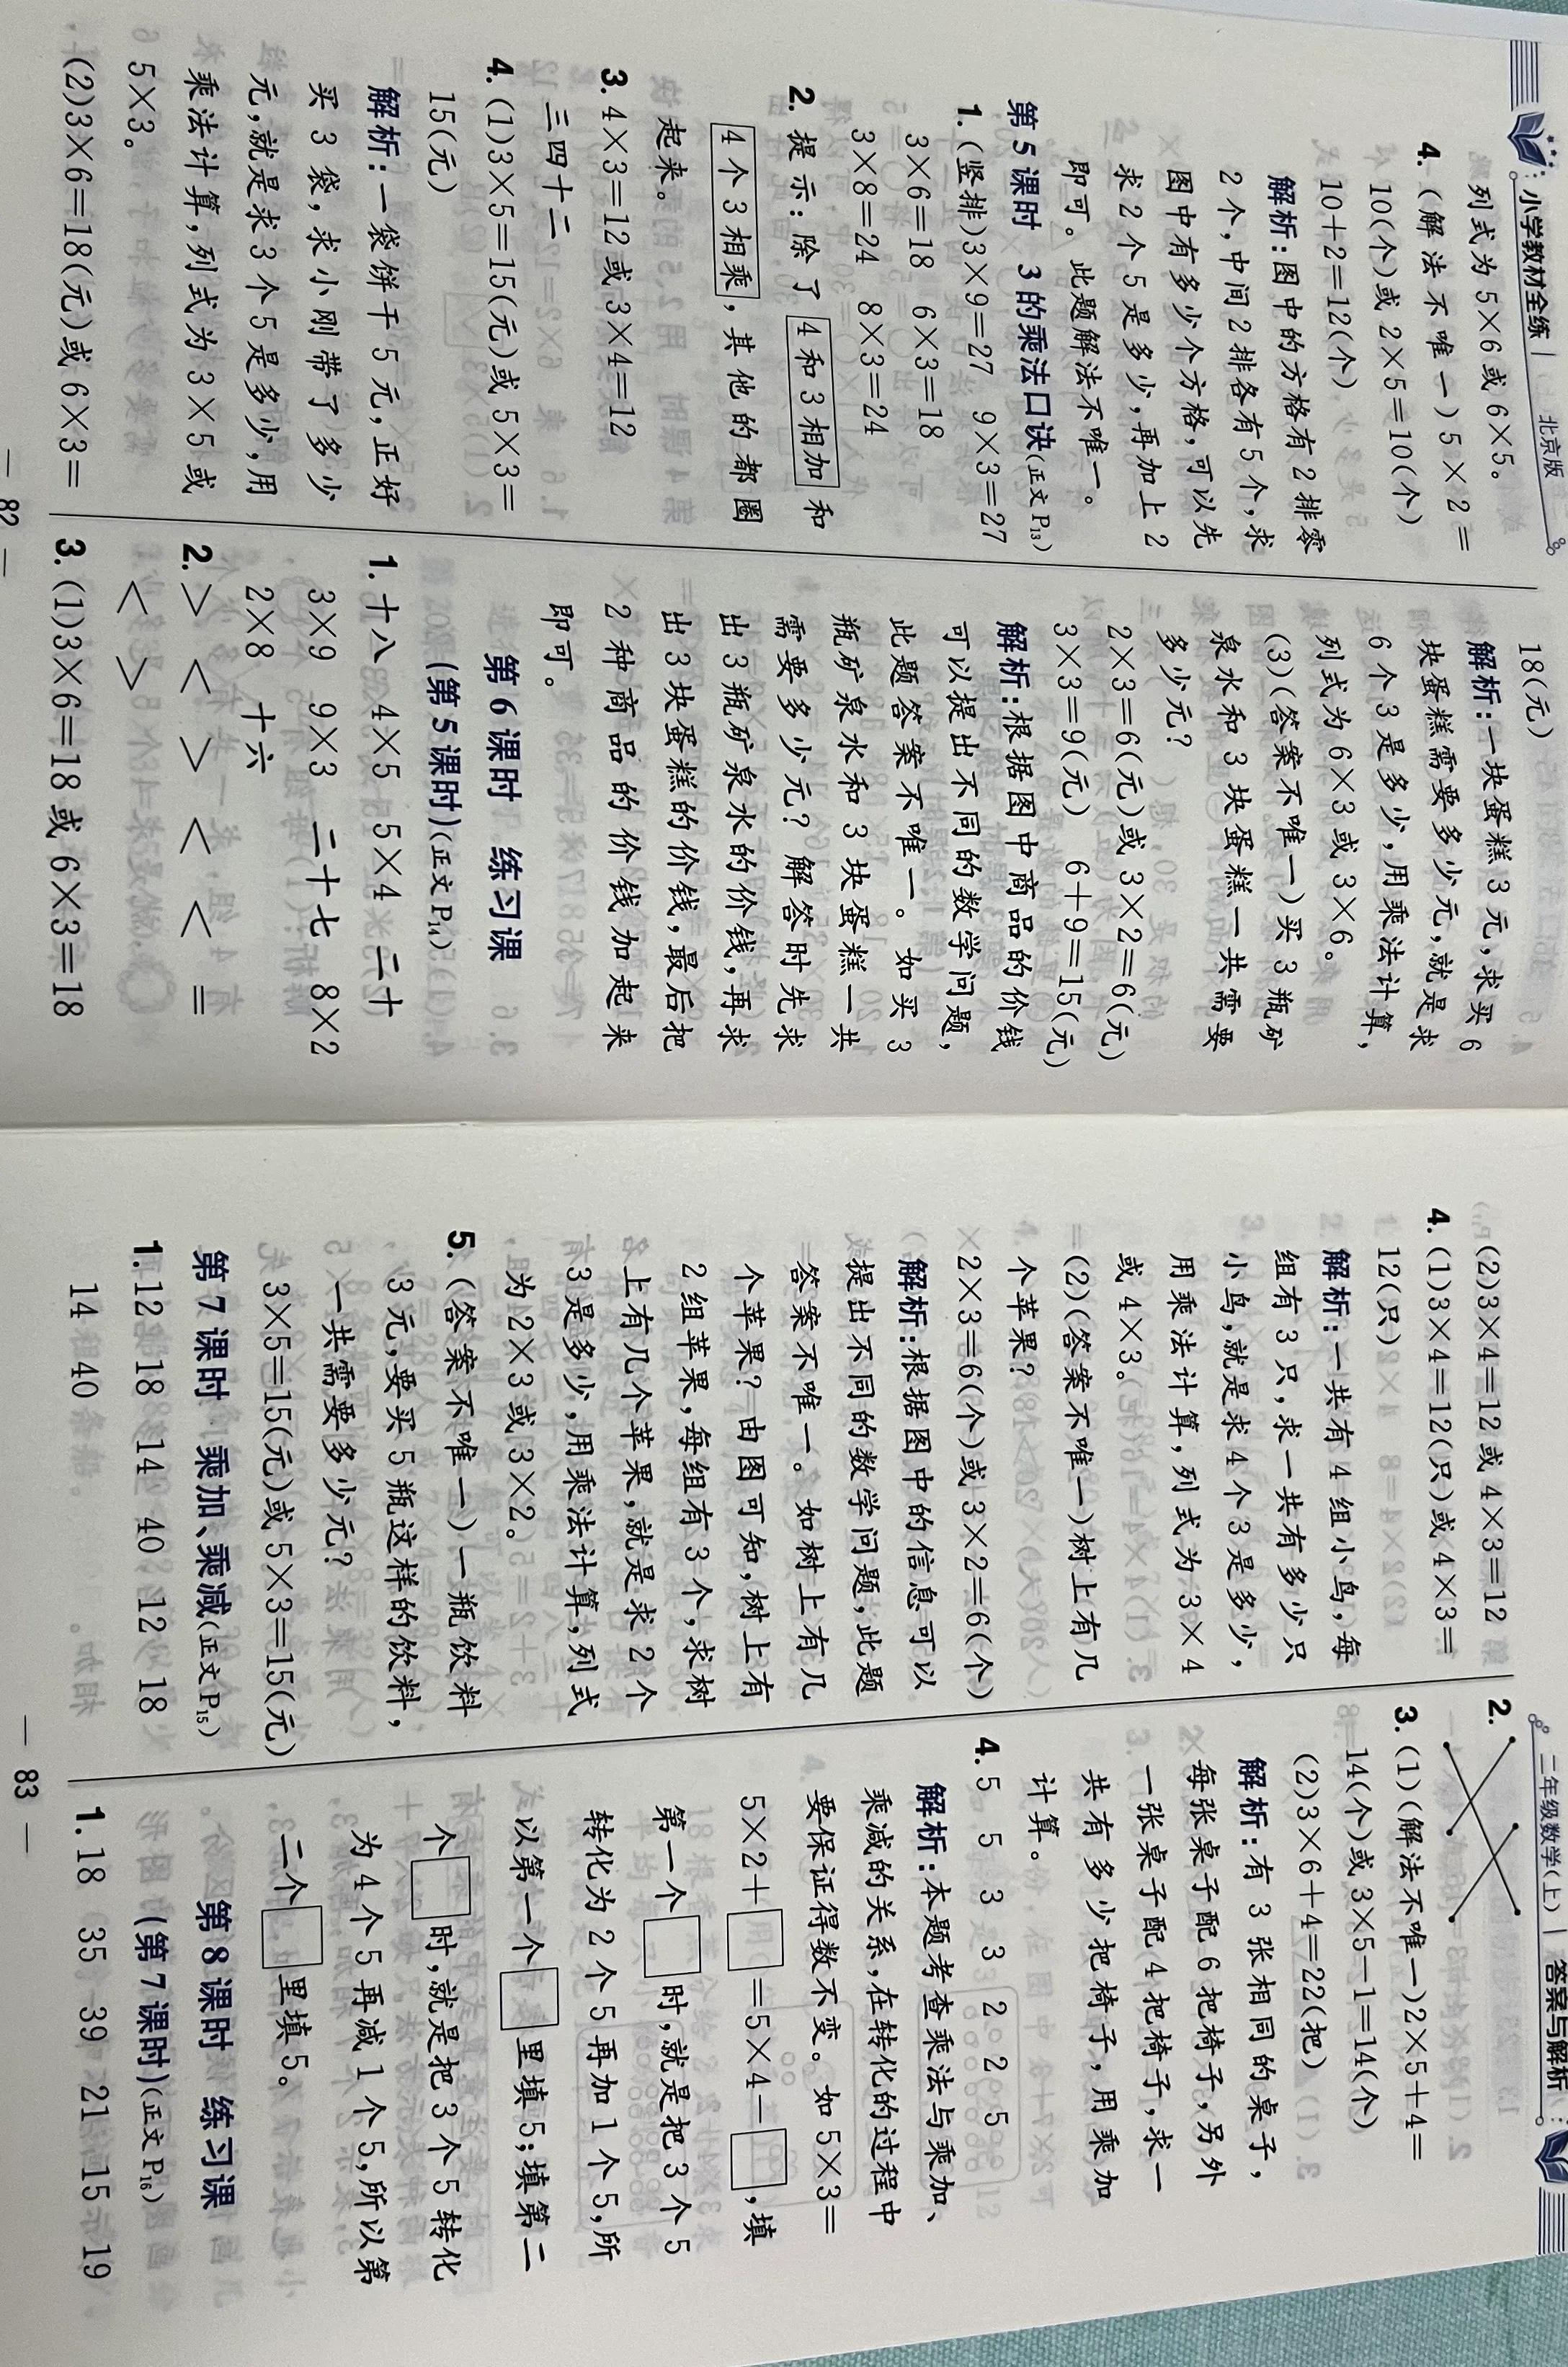 小学教材全练 北京版
列式为 5×6 或 6×5。
4. (解法不唯一)5×2=
10(个)或 2×5=10(个)
10+2=12(个)
解析:图中的方格有 2 排零
2 个,中间 2 排各有 5 个,求
图中有多少个方格,可以先
求 2 个 5 是多少,再加上 2
即可。此题解法不唯一。
第 5 课时 3 的乘法口诀(正文 P13)
1. (竖排)3×9=27 9×3=27
3×6=18 6×3=18
3×8=24 8×3=24
2. 提示:除了 4 和 3 相加 和
4 个 3 相乘,其他的都圈
起来。
3. 4×3=12 或 3×4=12
三四十二
4. (1)3×5=15(元)或 5×3=
15(元)
解析:一袋饼干 5 元,正好
买 3 袋,求小刚带了多少
元,就是求 3 个 5 是多少,用
乘法计算,列式为 3×5 或
5×3。
(2)3×6=18(元)或 6×3=
18(元)
解析:一块蛋糕 3 元,求买 6
块蛋糕需要多少元,就是求
6 个 3 是多少,用乘法计算,
列式为 6×3 或 3×6。
(3)(答案不唯一)买 3 瓶矿
泉水和 3 块蛋糕一共需要
多少元?
2×3=6(元)或 3×2=6(元)
3×3=9(元) 6+9=15(元)
解析:根据图中商品的价钱
可以提出不同的数学问题,
此题答案不唯一。如买 3
瓶矿泉水和 3 块蛋糕一共
需要多少元?解答时先求
出 3 瓶矿泉水的价钱,再求
出 3 块蛋糕的价钱,最后把
2 种商品的价钱加起来
即可。
第 6 课时 练习课
(第 5 课时)(正文 P14)
1. 十八 4×5 5×4 二十
3×9 9×3 二十七 8×2
2×8 十六
2. > < > < < =
< >
3. (1)3×6=18 或 6×3=18
— 82 —
二年级数学(上) 答案与解析
(2)3×4=12 或 4×3=12
4. (1)3×4=12(只)或 4×3=
12(只)
解析:一共有 4 组小鸟,每
组有 3 只,求一共有多少只
小鸟,就是求 4 个 3 是多少,
用乘法计算,列式为 3×4
或 4×3。
(2)(答案不唯一)树上有几
个苹果?
2×3=6(个)或 3×2=6(个)
解析:根据图中的信息可以
提出不同的数学问题,此题
答案不唯一。如树上有几
个苹果?由图可知,树上有
2 组苹果,每组有 3 个,求树
上有几个苹果,就是求 2 个
3 是多少,用乘法计算,列式
为 2×3 或 3×2。
5. (答案不唯一)一瓶饮料
3 元,要买 5 瓶这样的饮料,
一共需要多少元?
3×5=15(元)或 5×3=15(元)
第 7 课时 乘加、乘减(正文 P15)
1. 12 18 14 40 12 18
14 40
2.
3. (1)(解法不唯一)2×5+4=
14(个)或 3×5-1=14(个)
(2)3×6+4=22(把)
解析:有 3 张相同的桌子,
每张桌子配 6 把椅子,另外
一张桌子配 4 把椅子,求一
共有多少把椅子,用乘加
计算。
4. 5 5 3 3 2 2 5
解析:本题考查乘法与乘加、
乘减的关系,在转化的过程中
要保证得数不变。如 5×3=
5×2+□=5×4-□,填
第一个□时,就是把 3 个 5
转化为 2 个 5 再加 1 个 5,所
以第一个□里填 5;填第二
个□时,就是把 3 个 5 转化
为 4 个 5 再减 1 个 5,所以第
二个□里填 5。
第 8 课时 练习课
(第 7 课时)(正文 P16)
1. 18 35 39 21 15 19
— 83 —